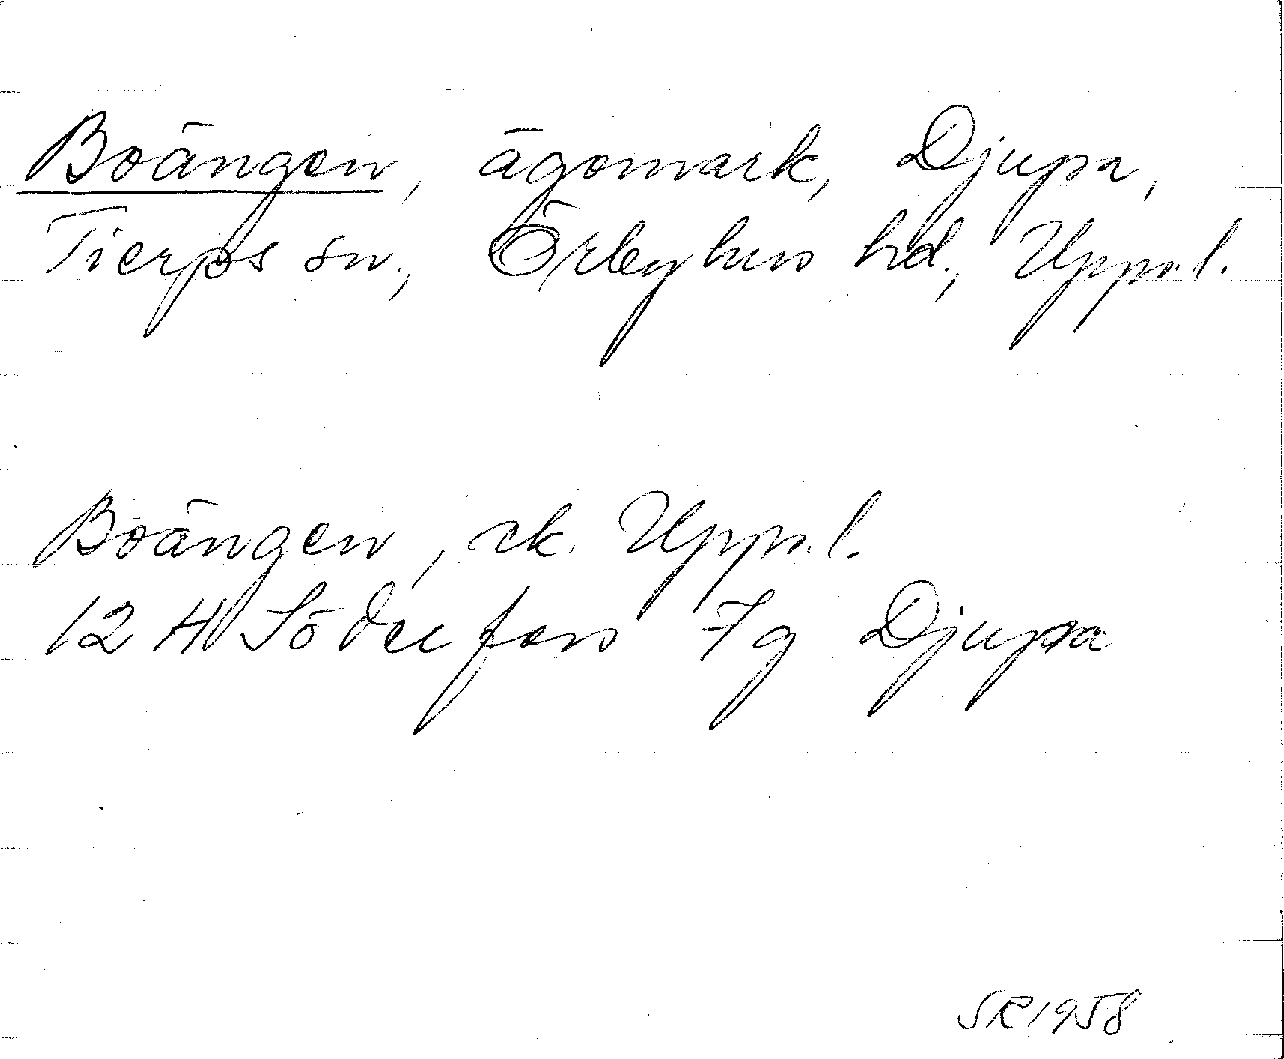 Boängen, ägomark, Djupa,
Tierps sn., Örbyhus hd., Uppl.
Boängen, ek. Uppl.
12 H Söderfors 7g Djupa
SR 1958